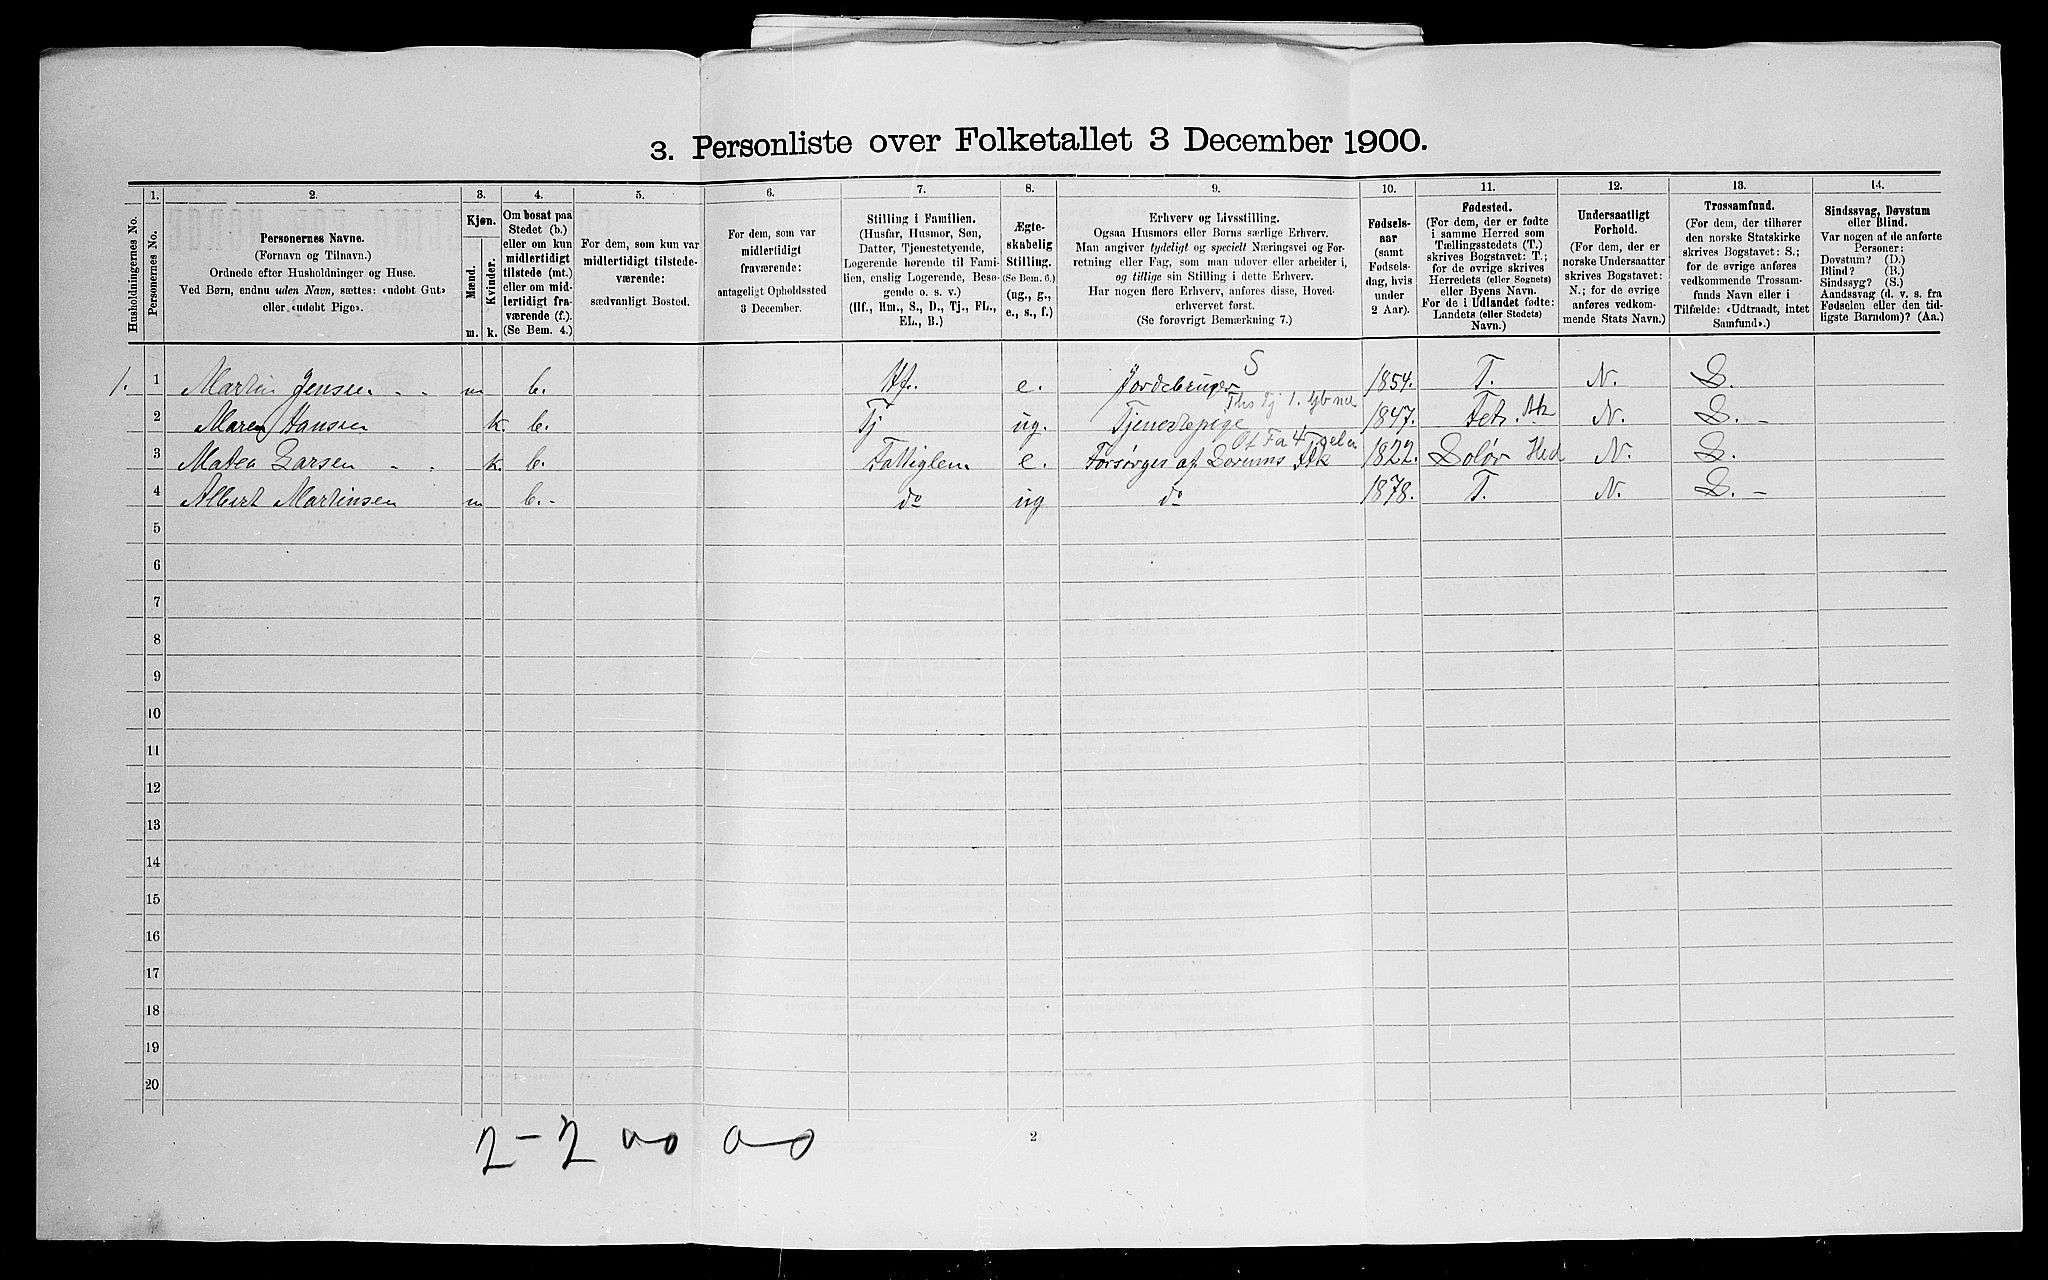 3. Personliste over Folketallet 3 December 1900.
1. 2. 3. 4. 5. 6. 7. 8. 9. 10. 11. 12. 13. 14.
Husholdningernes No.
Personernes No.
Personernes Navne.
(Fornavn og Tilnavn.)
Ordnede efter Husholdninger og Huse.
Ved Børn, endnu uden Navn, sættes: «udøbt Gut»
eller «udøbt Pige».
Kjøn.
Mænd.
Kvinder.
m. k.
Om bosat paa
Stedet (b.)
eller om kun
midlertidigt
tilstede (mt.)
eller om mid-
lertidigt fra-
værende (f.).
(Se Bem. 4.)
For dem, som kun var
midlertidigt tilstede-
værende:
sædvanligt Bosted.
For dem, som var
midlertidigt
fraværende:
antageligt Opholdssted
3 December.
Stilling i Familien.
(Husfar, Husmor, Søn,
Datter, Tjenestetyende,
Logerende hørende til Fami-
lien, enslig Logerende, Besø-
gende o. s. v.)
(Hf., Hm., S., D., Tj., FL.,
EL., B.)
Ægte-
skabelig
Stilling.
(Se Bem. 6.)
(ug., g.,
e., s., f.)
Erhverv og Livsstilling.
Ogsaa Husmors eller Børns særlige Erhverv.
Man angiver tydeligt og specielt Næringsvei og For-
retning eller Fag, som man udøver eller arbeider i,
og tillige sin Stilling i dette Erhverv.
Har nogen flere Erhverv, anføres disse, Hoved-
erhvervet først.
(Se forøvrigt Bemærkning 7.)
Fødsels-
aar
(samt
Fødsels-
dag, hvis
under
2 Aar).
Fødested.
(For dem, der er fødte
i samme Herred som
Tællingsstedets (T.)
skrives Bogstavet: T.;
for de øvrige skrives
Herredets (eller Sognets)
eller Byens Navn.
For de i Udlandet fødte:
Landets (eller Stedets)
Navn.)
Undersaatligt
Forhold.
(For dem, der er
norske Undersaatter
skrives Bogstavet:
N.; for de øvrige
anføres vedkom-
mende Stats Navn.)
Trossamfund.
(For dem, der tilhører
den norske Statskirke
skrives Bogstavet: S.;
for de øvrige anføres
vedkommende Trossam-
funds Navn eller i
Tilfælde: «Udtraadt, intet
Samfund».)
Sindssvag, Døvstum
eller Blind.
Var nogen af de anførte
Personer:
Døvstum? (D.)
Blind? (B.)
Sindssyg? (S.)
Aandssvag (d. v. s. fra
Fødselen eller den tid-
ligste Barndom)? (Aa.)
S
1. 1 Martin Jensen - - m b. Hf. e. Jordbruger 1854. T. N. S.
Ths Tj 1.
2 Maren Hansen k. b. Tj ug. Tjenestepige 1847. Fet. Ak N. S. -
Fa 4
3 Matea Larsen - - k. b. Fattiglem e. Forsørges af Sørums Ftk 1822. Solør Hed N. S.
4 Albert Martinsen m b. - do ug do 1878. T. N. S. -
5
6
7
8
9
10
11
12
13
14
15
16
17
18
19
20
2 - 2 00 0-0
2